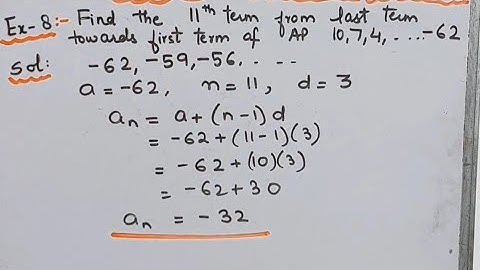 Ex-8:- Find the 11th term from last term
towards first term of AP 10,7,4, .....-62
Sol: -62,-59,-56, . ..
a = -62, n = 11, d = 3
an = a+(n-1)d
= -62+(11-1)(3)
= -62+(10)(3)
= -62+30
an = -32